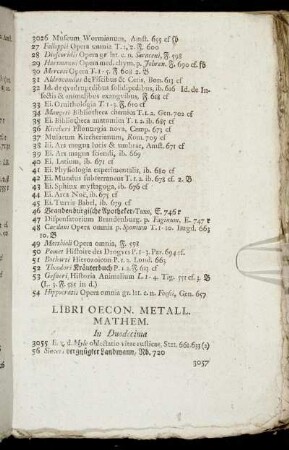 3026 Museum Wormianum, Amst. 655 cf
27 Falloppii Opera omnia T. 1, 2. F. 600
28 Dioscoridis Opera gr. lat. c. n. Saraceni, F. 598
29 Hartmanni Opera med. chym. p. Johren. F. 690 cf.
30 Mercati Opera T. 1-5. F. 608 2. B
31 Aldrovandus de Piscibus & Cetis, Bon. 613 cf
32 Id. de quadrupedibus solidipedibus, ib. 616 Id. de In-
sectis & animalibus exanguibus, F. 618 cf
33 Ei. Ornithologia T. 1-3. F. 610 cf
34 Mangeti Bibliotheca chemica T. 1. 2. Gen. 702 cf
35 Ei. Bibliotheca anatomica T. 1. 2. ib. 685 cf
36 Kircheri Phonurgia nova, Camp. 673 cf
37 Museum Kircherianum, Rom. 709 cf
38 Ei. Ars magna lucis & umbrae, Amst. 671 cf
39 Ei. Ars magna sciendi, ib. 669
40 Ei. Latium, ib. 671 cf
41 Ei. Physiologia experimentalis, ib. 680 cf
42 Ei. Mundus subterraneus T. 1. 2. ib. 678 cf. 2. B
43 Ei. Sphinx mystagoga, ib. 676 cf
44 Ei. Arca Noë, ib. 675 cf
45 Ei. Turris Babel, ib. 679 cf
46 Brandenburgische Apotheker-Taxe, E. 746 r
47 Dispensatorium Brandenburg. p. E. 747 r
48 Cardani Opera omnia p. Sponium T. 1-10. Lugd. 663
10. B
49 Matthioli Opera omnia, F. 598
50 Pomet Histoire des Drogues P. 1-3. Par. 694 cf.
51 Bocharti Hierozoicon P. 1. 2. Lond. 663
52 Theodori Kräuterbuch P. 1. 2. F. 613 cf
53 Gesneri, Historia Animalium L. 1-4. Tig. 551 cf. 3. B
(L. 3. F. 585 in d.)
54 Hippocratis Opera omnia gr. lat. c. n. Foesii, Gen. 657

LIBRI OECON. METALL.
MATHEM.
In Duodecimo
3055 oblectatio vitae rusticae, Stet. 661. 633 (2)
56 vergnügter Landmann, Nb. 720
3057